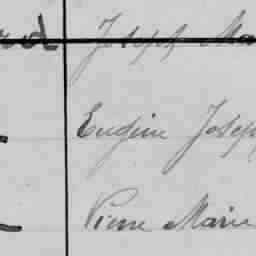 rd Joseph Ma
Eugène Josep
Pierre Marie